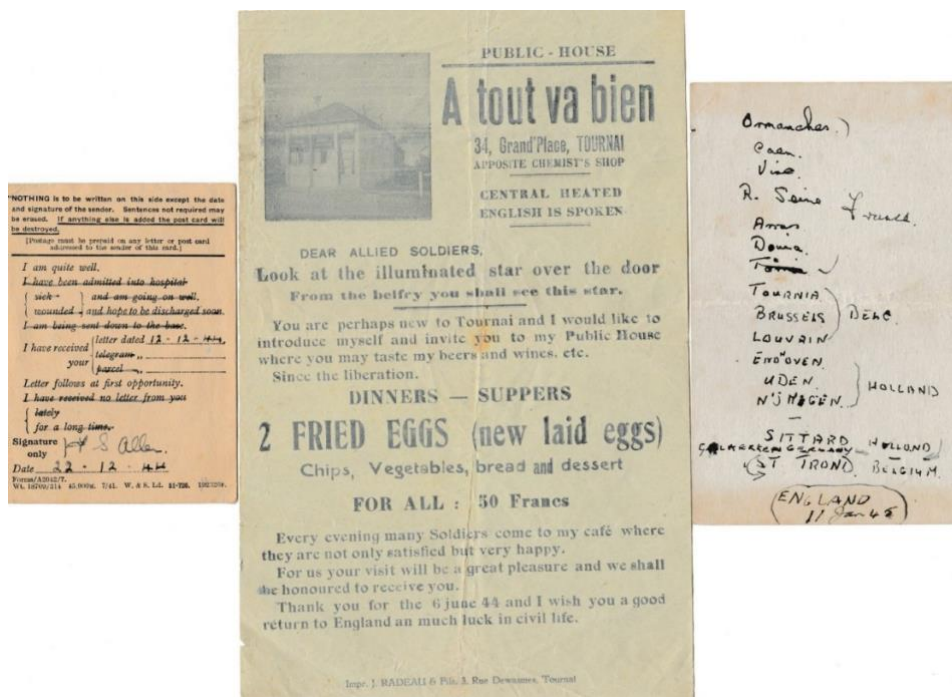 "NOTHING is to be written on this side except the date
and signature of the sender. Sentences not required may
be erased. If anything else is added the post card will
be destroyed.
[Postage must be prepaid on any letter or post card
addressed to the sender of this card.]
I am quite well.
I have been admitted into hospital
sick and am going on well.
wounded and hope to be discharged soon.
I am being sent down to the base.
I have received your
letter dated 12-12-44
telegram "
parcel "
Letter follows at first opportunity.
I have received no letter from you
lately
for a long time.
Signature only S Allen
Date 22.12.44
Forms/A2042/7.
PUBLIC - HOUSE
A tout va bien
34, Grand'Place, TOURNAI
APPOSITE CHEMIST'S SHOP
CENTRAL HEATED
ENGLISH IS SPOKEN
DEAR ALLIED SOLDIERS,
Look at the illuminated star over the door
From the belfry you shall see this star.
You are perhaps new to Tournai and I would like to
introduce myself and invite you to my Public House
where you may taste my beers and wines. etc.
Since the liberation.
DINNERS — SUPPERS
2 FRIED EGGS (new laid eggs)
Chips, Vegetables, bread and dessert
FOR ALL : 50 Francs
Every evening many Soldiers come to my café where
they are not only satisfied but very happy.
For us your visit will be a great pleasure and we shall
be honoured to receive you.
Thank you for the 6 june 44 and I wish you a good
return to England an much luck in civil life.
Impr. J. RADEAU & Fils, 3, Rue Tournai
Caen.
R. Seine
Arras
TOURNIA
BRUSSELS
BELG.
LOUVAIN
UDEN
N'JMEGEN
HOLLAND
SITTARD HOLLAND
ST TROND. BELGIUM
ENGLAND
11 Jan 45